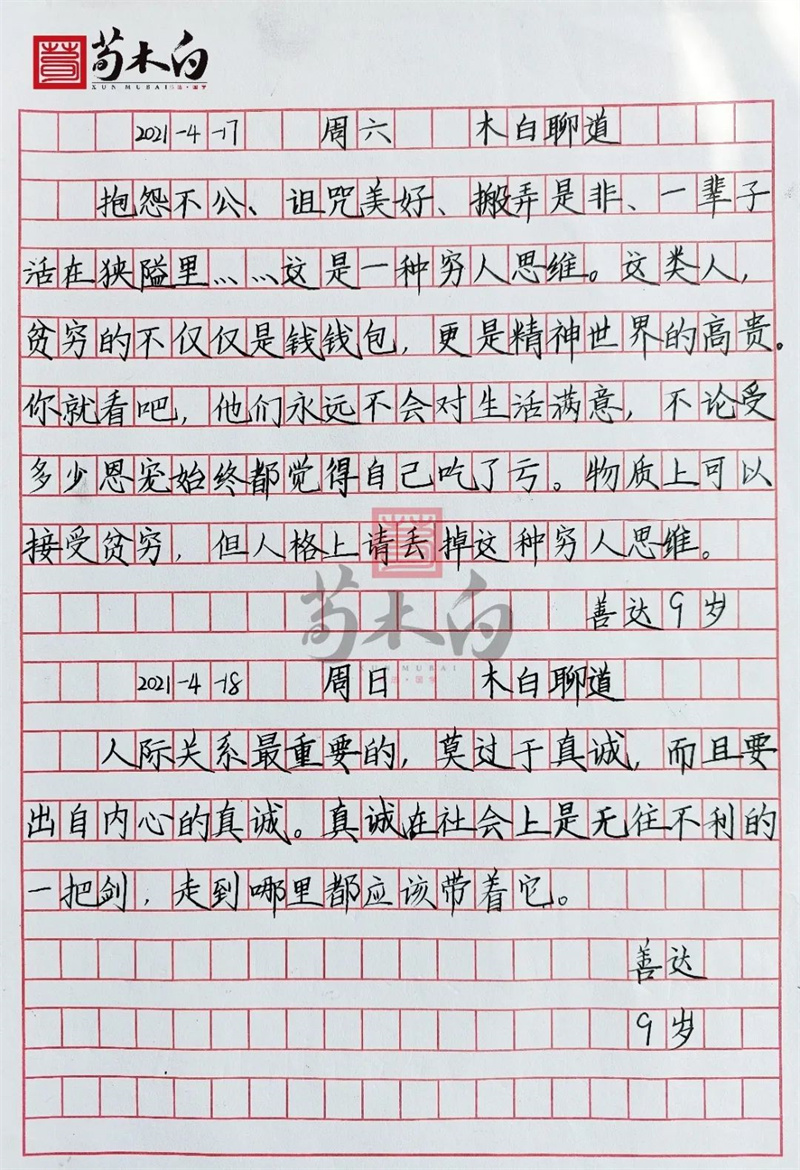 荀木白
XUN MUBAI
2021-4-17 周六 木白聊道
抱怨不公、诅咒美好、搬弄是非、一辈子
活在狭隘里……这是一种穷人思维。这类人，
贫穷的不仅仅是钱钱包，更是精神世界的高贵。
你就看吧，他们永远不会对生活满意，不论受
多少恩宠始终都觉得自己吃了亏。物质上可以
接受贫穷，但人格上请丢掉这种穷人思维。
善达9岁
2021-4-18 周日 木白聊道
人际关系最重要的，莫过于真诚，而且要
出自内心的真诚。真诚在社会上是无往不利的
一把剑，走到哪里都应该带着它。
善达
9岁
荀木白
XUN MUBAI